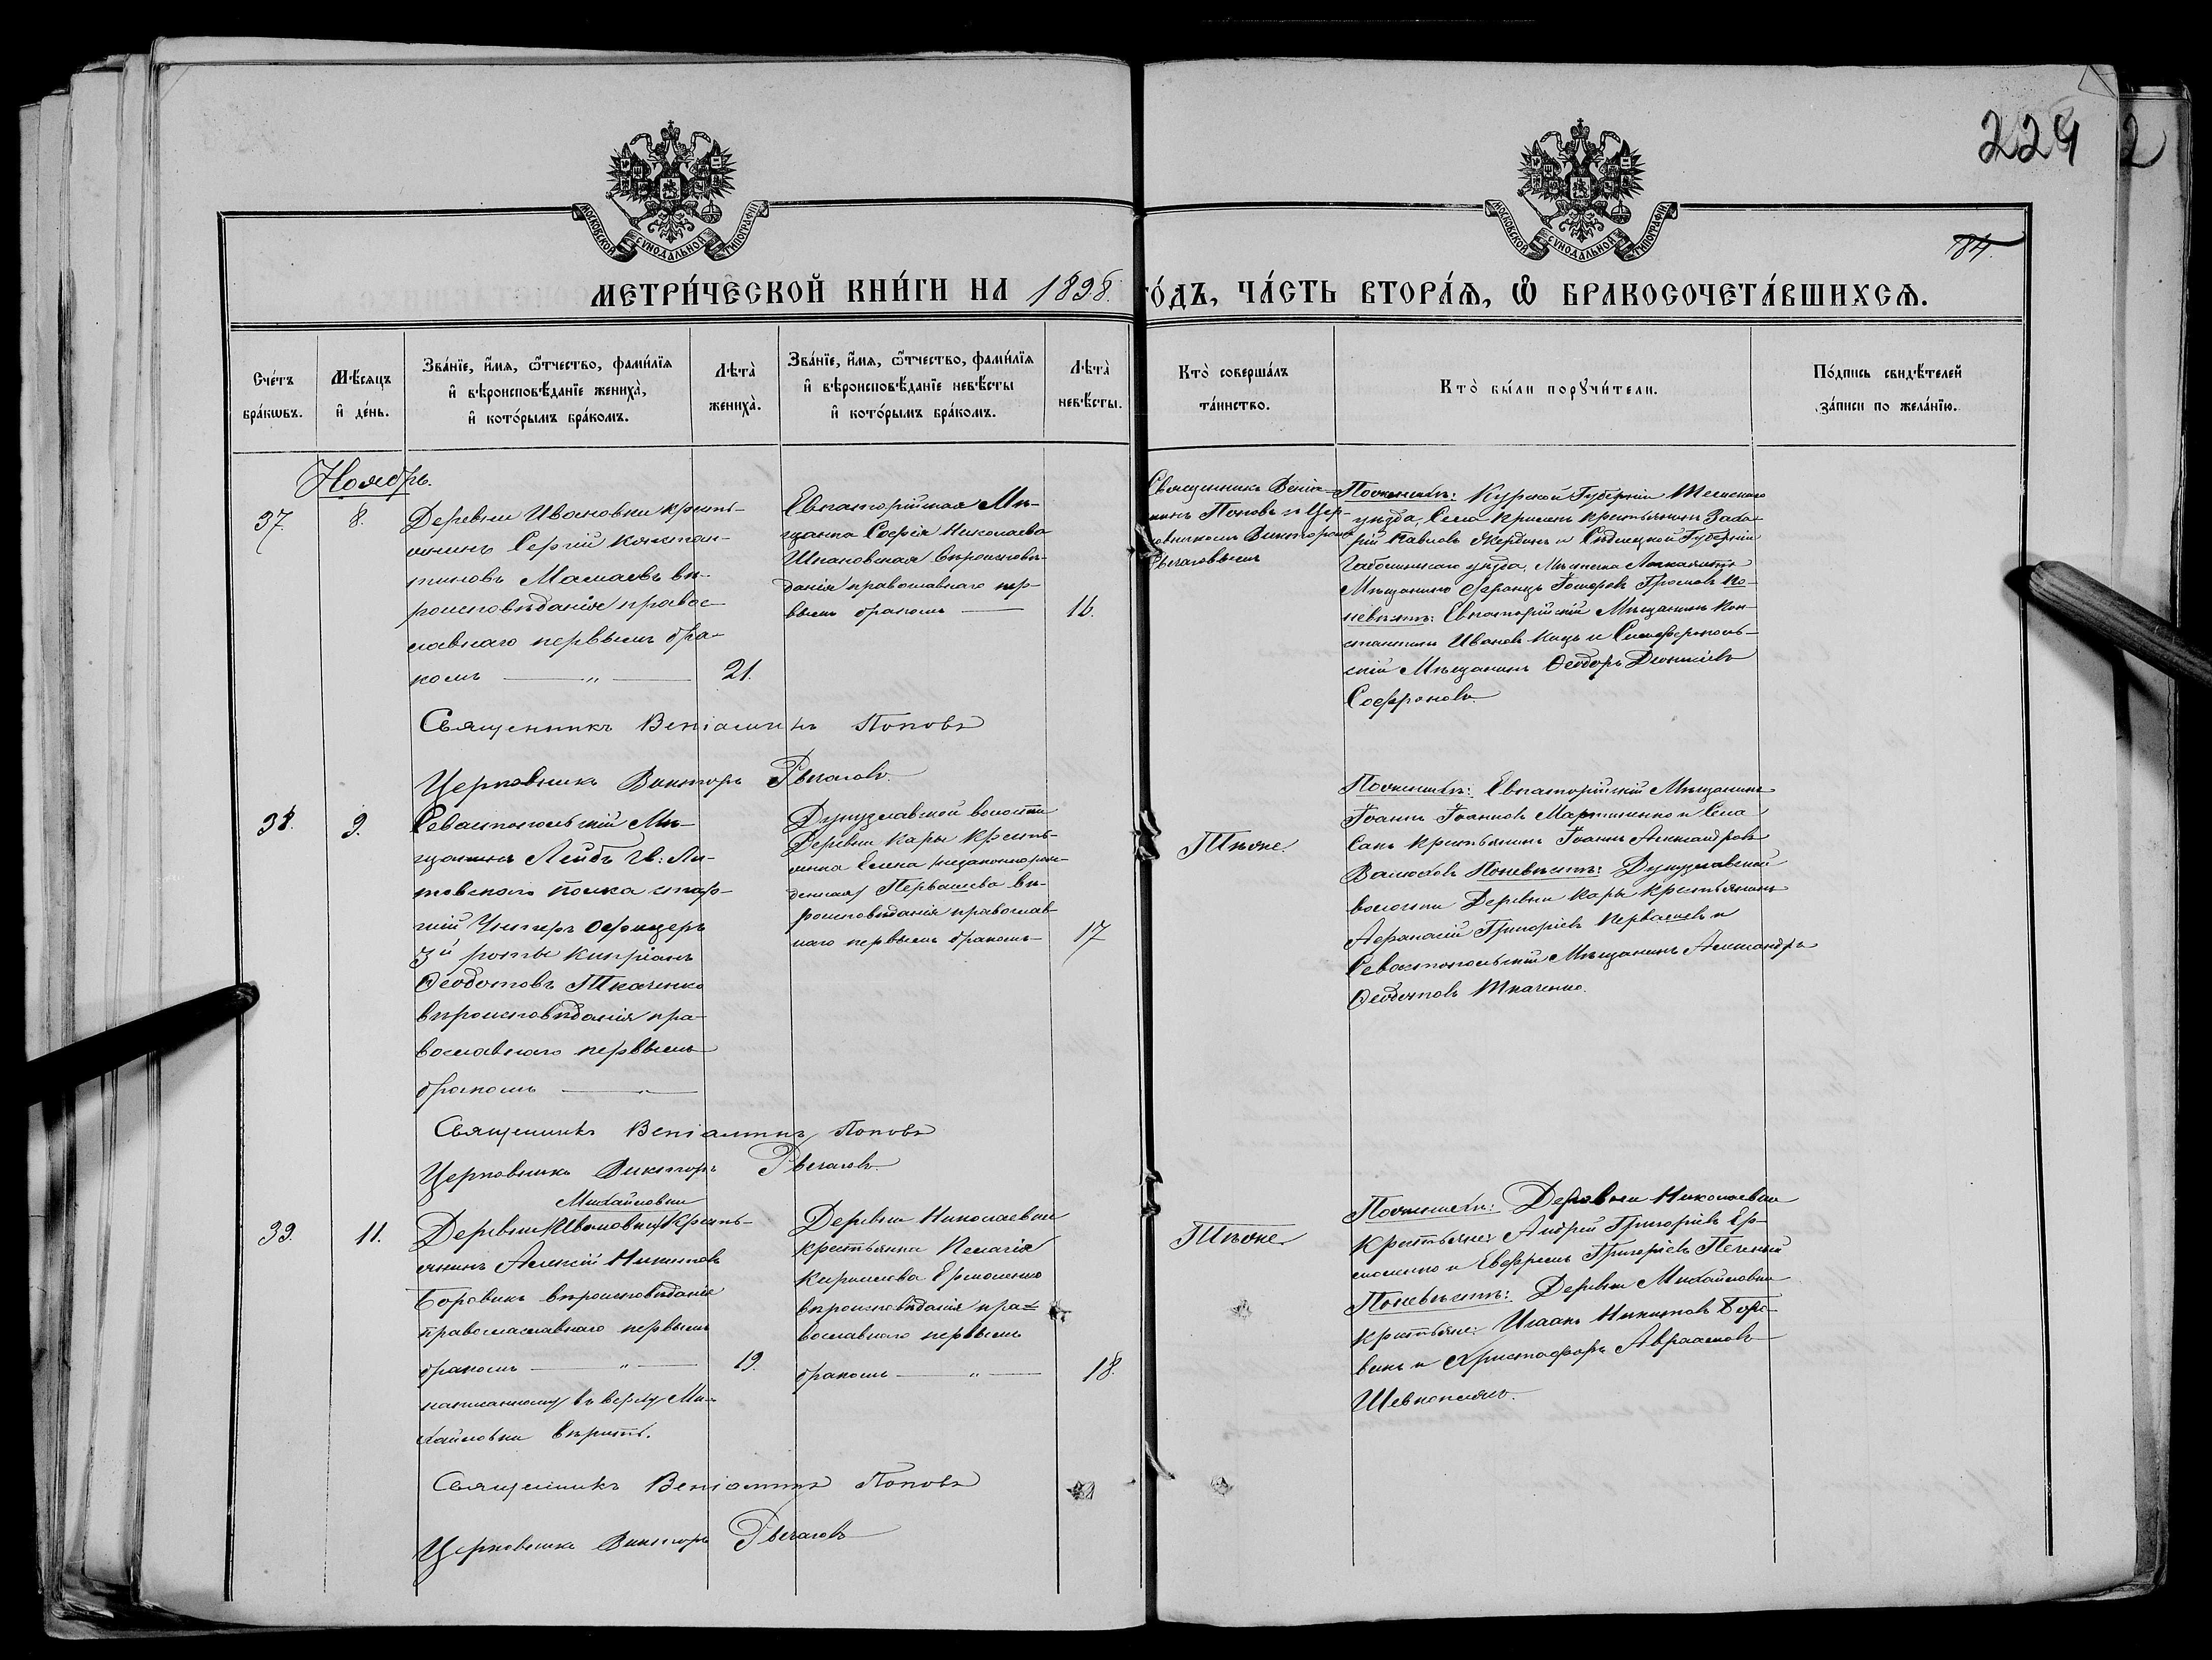 229
2
184.
МОСКОВСКОЙ СѴНОДАЛЬНОЙ ТИПОГРАФІИ
МОСКОВСКОЙ СѴНОДАЛЬНОЙ ТИПОГРАФІИ
МЕТРИ́ЧЕСКОЙ КНИ́ГИ НА 1898. ГО́ДЪ, ЧА́СТЬ ВТОРА́Ѧ, Ѽ БРАКОСОЧЕТА́ВШИХСѦ.
Сче́тъ
бра́кѡвъ.
Мѣ́сяцъ
и҆ де́нь.
Зва́нїе, и҆́мѧ, ѻ҆́тчество, фами́лїѧ
и҆ вѣроисповѣ́данїе жениха̀,
и҆ кото́рымъ бра́комъ.
Лѣ́та̀
жениха̀.
Зва́нїе, и҆́мѧ, ѻ҆́тчество, фами́лїѧ
и҆ вѣроисповѣ́данїе невѣ́сты
и҆ кото́рымъ бра́комъ.
Лѣ́та̀
невѣ́сты.
Кто̀ соверша́лъ
та́инство.
Кто̀ бы́ли порꙋчи́тели.
По́дпись свидѣ́телей
за́писи по жела́нїю.
Ноябрь.
37.
8.
Деревни Ивановки кресть-
янинъ Сергій Констан-
тиновъ Мамаевъ вѣ-
роисповѣданія правос-
лавнаго первымъ бра-
комъ — „ —
21.
Евпаторійская Мѣ-
щанка Софія Николаева
Шпановская вѣроисповѣ-
данія православнаго пер-
вымъ бракомъ —
16.
Священникъ Веніа-
минъ Поповъ и Цер-
ковникомъ Викторомъ
Рвачовымъ
Поженихѣ: Курской Губерніи
уѣзда, Села крестьянинъ Заха-
рій Павловъ и Сѣдлецкой Губерніи
уѣзда, Мѣстечка
Мѣщанинъ Францъ По-
невѣстѣ: Евпаторійскій Мѣщанинъ Кон-
стантинъ Ивановъ и Симферополь-
скій Мѣщанинъ Ѳеодоръ Діонисіевъ
Софроновъ.
Священникъ Веніаминъ Поповъ
Церковникъ Викторъ Рвачовъ.
38.
9.
Севастопольскій Мѣ-
щанинъ Лейбъ Гв: Ли-
товскаго полка стар-
шій Унтеръ Офицеръ
3й роты Кипріанъ
Ѳеодотовъ Ткаченко
вѣроисповѣданія пра-
вославнаго первымъ
бракомъ —
Дунузлавской волости
Деревни Кары Кресть-
янка Елена (незаконнорож-
денная) Первашева вѣ-
роисповѣданія православ-
наго первымъ бракомъ —
17
Тѣже.
Поженихѣ: Евпаторійскій Мѣщанинъ
Іоаннъ Іоанновъ Мартиненко и Села
Сакъ Крестьянинъ Іоаннъ Александровъ
Поневѣстѣ: Дунузлавской
волости Деревни Кары Крестьянинъ
Афанасій Григоріевъ Первашевъ и
Севастопольскій Мѣщанинъ Александръ
Ѳеодотовъ Ткаченко.
Священникъ Веніаминъ Поповъ
Церковникъ Викторъ Рвачовъ.
Михайловки
39.
11.
Деревни (Ивановки) Кресть-
янинъ Алексій Никитовъ
Боровикъ вѣроисповѣданія
православнаго первымъ
бракомъ — „ —
19.
написанному въ верху Ми-
хайловки вѣрить.
Деревни Николаевки
крестьянка Пелагія
Кириллова Ермоленко
вѣроисповѣданія пра-
вославнаго первымъ
бракомъ — „ —
18.
Тѣже.
Поженихѣ: Деревни Николаевки
Крестьяне: Андрей Григоріевъ Ер-
моленко и Евфремъ Григоріевъ Печеный
Поневѣстѣ: Деревни Михайловки
Крестьяне: Исаакъ Никитовъ Боро-
викъ и Христофоръ Авраамовъ
Шевкоплясъ.
Священникъ Веніаминъ Поповъ
Церковникъ Викторъ Рвачовъ